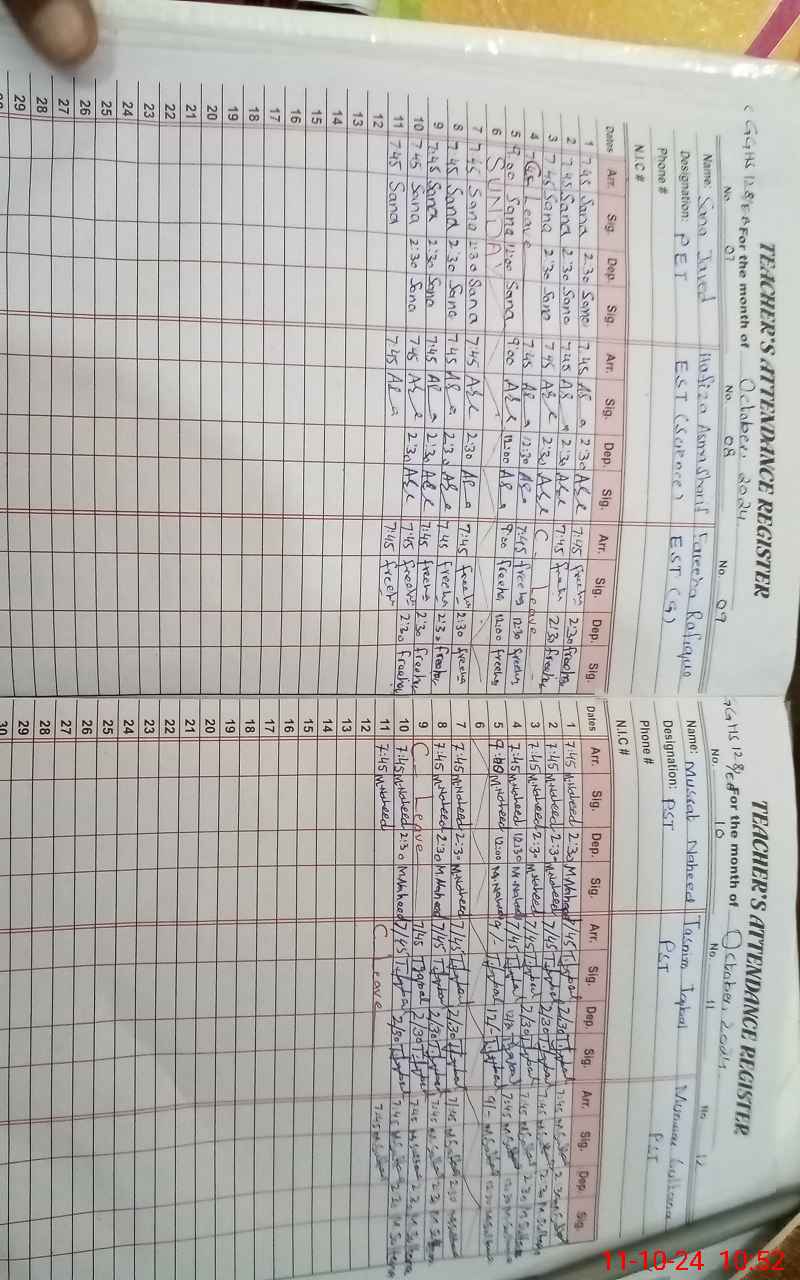 TEACHER'S ATTENDANCE REGISTER
GGHS 128/EB For the month of October, 2024
No. 07 No. 08 No. 09
Name: Sana Javed Hafiza Asma Sharif Fareeha Rafique
Designation: PET EST (Science) EST (G)
Phone #
N.I.C #
Dates Arr. Sig. Dep. Sig. Arr. Sig. Dep. Sig. Arr. Sig. Dep. Sig.
1 7:45 Sana 2:30 Sana 7:45 2:30 7:45 freeha 2:30 freeha
2 7:45 Sana 2:30 Sana 7:45 2:30 7:45 freeha 2:30 freeha
3 7:45 Sana 2:30 Sana 7:45 2:30 C. Leave
4 Leave 7:45 12:30 7:45 freeha 12:30 freeha
5 9:00 Sana 12:00 Sana 9:00 12:00 9:00 freeha 12:00 freeha
6 SUNDAY
7 7:45 Sana 2:30 Sana 7:45 2:30 7:45 freeha 2:30 freeha
8 7:45 Sana 2:30 Sana 7:45 2:30 7:45 freeha 2:30 freeha
9 7:45 Sana 2:30 Sana 7:45 2:30 7:45 freeha 2:30 freeha
10 7:45 Sana 2:30 Sana 7:45 2:30 7:45 freeha 2:30 freeha
11 7:45 Sana 7:45 7:45 freeha
12
13
14
15
16
17
18
19
20
21
22
23
24
25
26
27
28
29
TEACHER'S ATTENDANCE REGISTER
GGHS 128/EB For the month of October, 2024
No. 10 No. 11 No. 12
Name: Musrat Naheed Tasnim Iqbal Sultana
Designation: PST PST PST
Phone #
N.I.C #
Dates Arr. Sig. Dep. Sig. Arr. Sig. Dep. Sig. Arr. Sig. Dep. Sig.
1 7:45 M.Naheed 2:30 M.Naheed 7/45 T.Iqbal 2/30 T.Iqbal 7:45 M.Sultana 2:30 M.Sultana
2 7:45 M.Naheed 2:30 M.Naheed 7/45 T.Iqbal 2/30 T.Iqbal 7:45 M.Sultana 2:30 M.Sultana
3 7:45 M.Naheed 2:30 M.Naheed 7/45 T.Iqbal 2/30 T.Iqbal 7:45 M.Sultana 2:30 M.Sultana
4 7:45 M.Naheed 12:30 M.Naheed 7/45 T.Iqbal T.Iqbal 7:45 M.Sultana 12:30 M.Sultana
5 9:00 M.Naheed 12:00 M.Naheed 9/- T.Iqbal 12/- T.Iqbal 9/- M.Sultana M.Sultana
6
7 7:45 M.Naheed 2:30 M.Naheed 7/45 T.Iqbal 2/30 T.Iqbal 7:45 M.Sultana 2:30 M.Sultana
8 7:45 M.Naheed 2:30 M.Naheed 7/45 T.Iqbal 2/30 T.Iqbal 7:45 M.Sultana 2:30 M.Sultana
9 C. Leave 7/45 T.Iqbal 2/30 T.Iqbal 7:45 M.Sultana 2:30 M.Sultana
10 7:45 M.Naheed 2:30 M.Naheed 7/45 T.Iqbal 2/30 T.Iqbal 7:45 M.Sultana 2:30 M.Sultana
11 7:45 M.Naheed C. Leave 7:45 M.Sultana
12
13
14
15
16
17
18
19
20
21
22
23
24
25
26
27
28
29
30
11-10-24 10:52